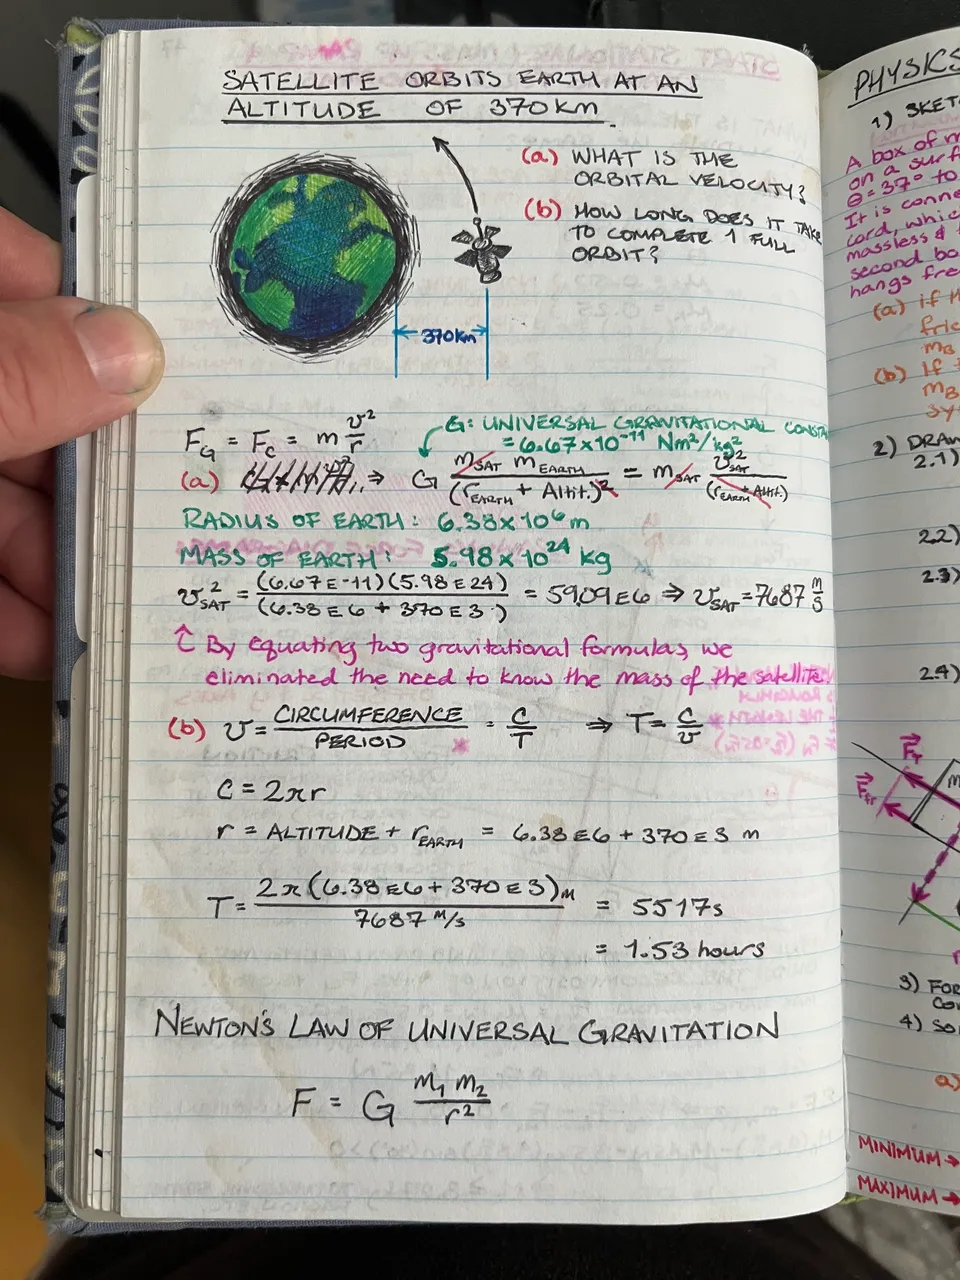 SATELLITE ORBITS EARTH AT AN
ALTITUDE OF 370 km.
(a) WHAT IS THE
ORBITAL VELOCITY?
(b) HOW LONG DOES IT TAKE
TO COMPLETE 1 FULL
ORBIT?
370km
F_G = F_C = m v²/r
G: UNIVERSAL GRAVITATIONAL
= 6.67x10⁻¹¹ Nm²/kg²
(a) ⇒ G m_SAT m_EARTH/(r_EARTH + Altit.)² = m_SAT v²_SAT/(r_EARTH + Altit.)
RADIUS OF EARTH: 6.38x10⁶ m
MASS OF EARTH: 5.98x10²⁴ kg
v²_SAT = (6.67E-11)(5.98E24)/(6.38E6 + 370E3) = 59.09E6 ⇒ v_SAT = 7687 m/s
↑ By equating two gravitational formulas, we
eliminated the need to know the mass of the satellite!
(b) v = CIRCUMFERENCE/PERIOD = C/T ⇒ T = C/v
C = 2πr
r = ALTITUDE + r_EARTH = 6.38E6 + 370E3 m
T = 2π(6.38E6 + 370E3)m/7687 m/s = 5517s
= 1.53 hours
NEWTON'S LAW OF UNIVERSAL GRAVITATION
F = G m₁ m₂/r²
PHYSICS
1)
A box of
on a
θ = 37° to
It is
cord,
massless &
second
hangs
(a) if
(b) If
2)
2.1)
2.2)
2.3)
2.4)
F_T
3) FOR
4)
a)
MINIMUM →
MAXIMUM →